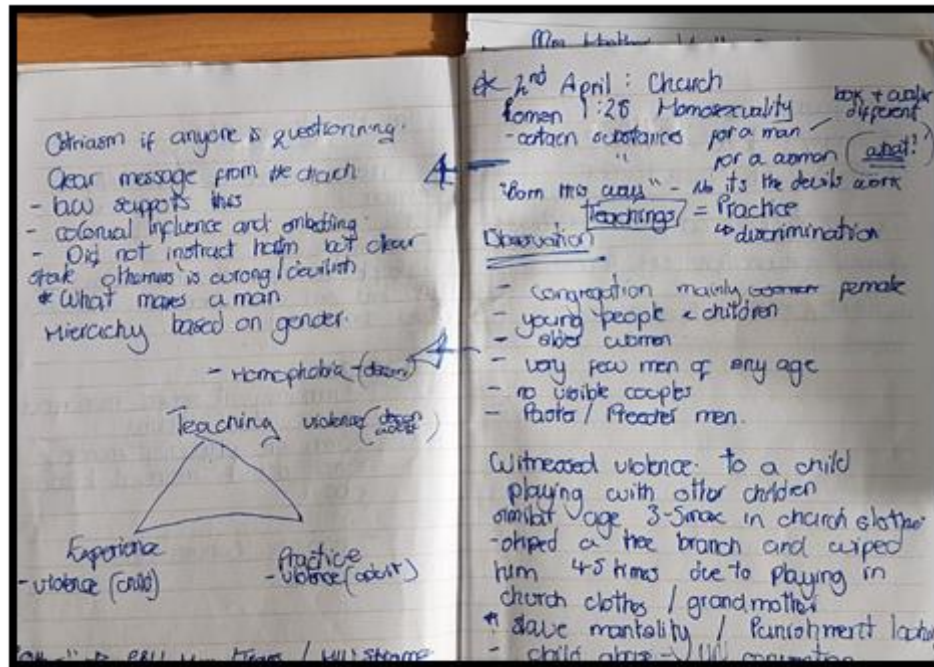 Ostriasm if anyone is questionning.
Clear message from the church
- b.w supports this
- colonial influence and
- Did not instruct harm but clear
otherness is wrong / devilish
* What makes a man
Hierachy based on gender.
- Homophobia - (
Teaching violence (
Experience
- violence (child)
Practice
- violence (adult)
2nd April : Church
Romen 1:28 Homosexuality
book +
different
- certain substances for a man
" for a woman (what?)
"Born this way" - No its the devils work
Teachings = Practice
↳ discrimination
Observation
- congregation mainly female
- young people & children
- older women
- very few men of any age
- no visible couples
- Pastor / Preacher men.
Witnessed violence to a child
playing with other children
similar age 3-5max in church clothes
- a tree branch and wiped
him 4-5 times due to playing in
church clothes / grandmother
* slave mentality / Punishment
- child abuse → UN convention